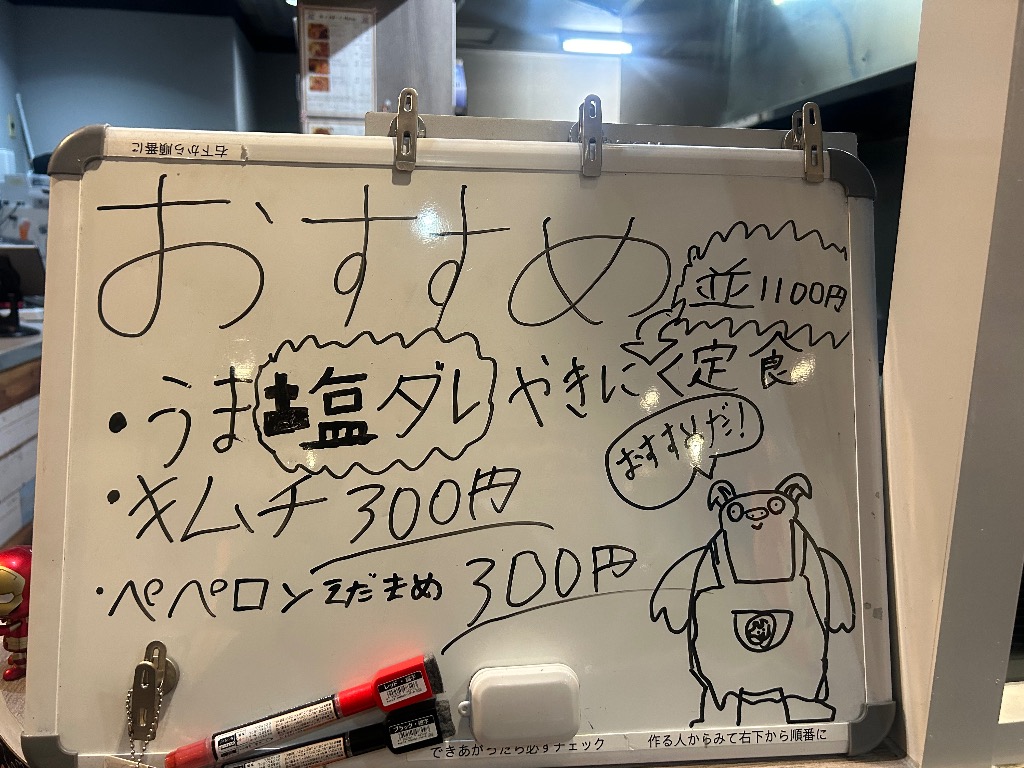 右下から順番に
おすすめ
並1100円
・うま塩ダレやきにく定食
おすすめだ!
・キムチ300円
・ペペロンえだまめ 300円
できあがったら必ずチェック
作る人からみて右下から順番に